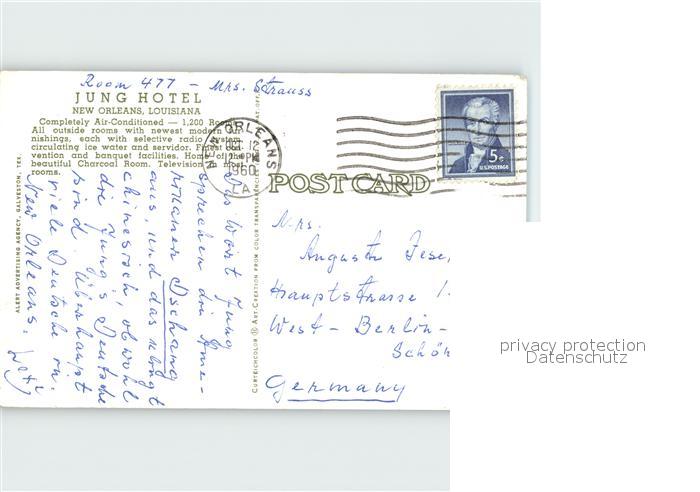 Room 477 – Mrs. Strauss
JUNG HOTEL
NEW ORLEANS, LOUISIANA
Completely Air-Conditioned — 1,200 Rooms
All outside rooms with newest modern fur-
nishings, each with selective radio system
circulating ice water and servidor. Finest con-
vention and banquet facilities. Home of the
beautiful Charcoal Room. Television in most
rooms.
ALERT ADVERTISING AGENCY, GALVESTON, TEX.
NEW ORLEANS
12
PM
1960
LA
5¢
U.S. POSTAGE
POST CARD
CURTEICHCOLOR ® ART-CREATION FROM COLOR TRANSPARENCY
Das Wort Jung
sprechen die Ame-
rikaner Dschang
aus, und das klingt
chinesisch, obwohl
die Jung's Deutsche
sind. Überhaupt
viele Deutsche in
New Orleans.
Mrs.
Auguste Jese,
Hauptstrasse 1
West-Berlin-
Schön
Germany
privacy protection
Datenschutz